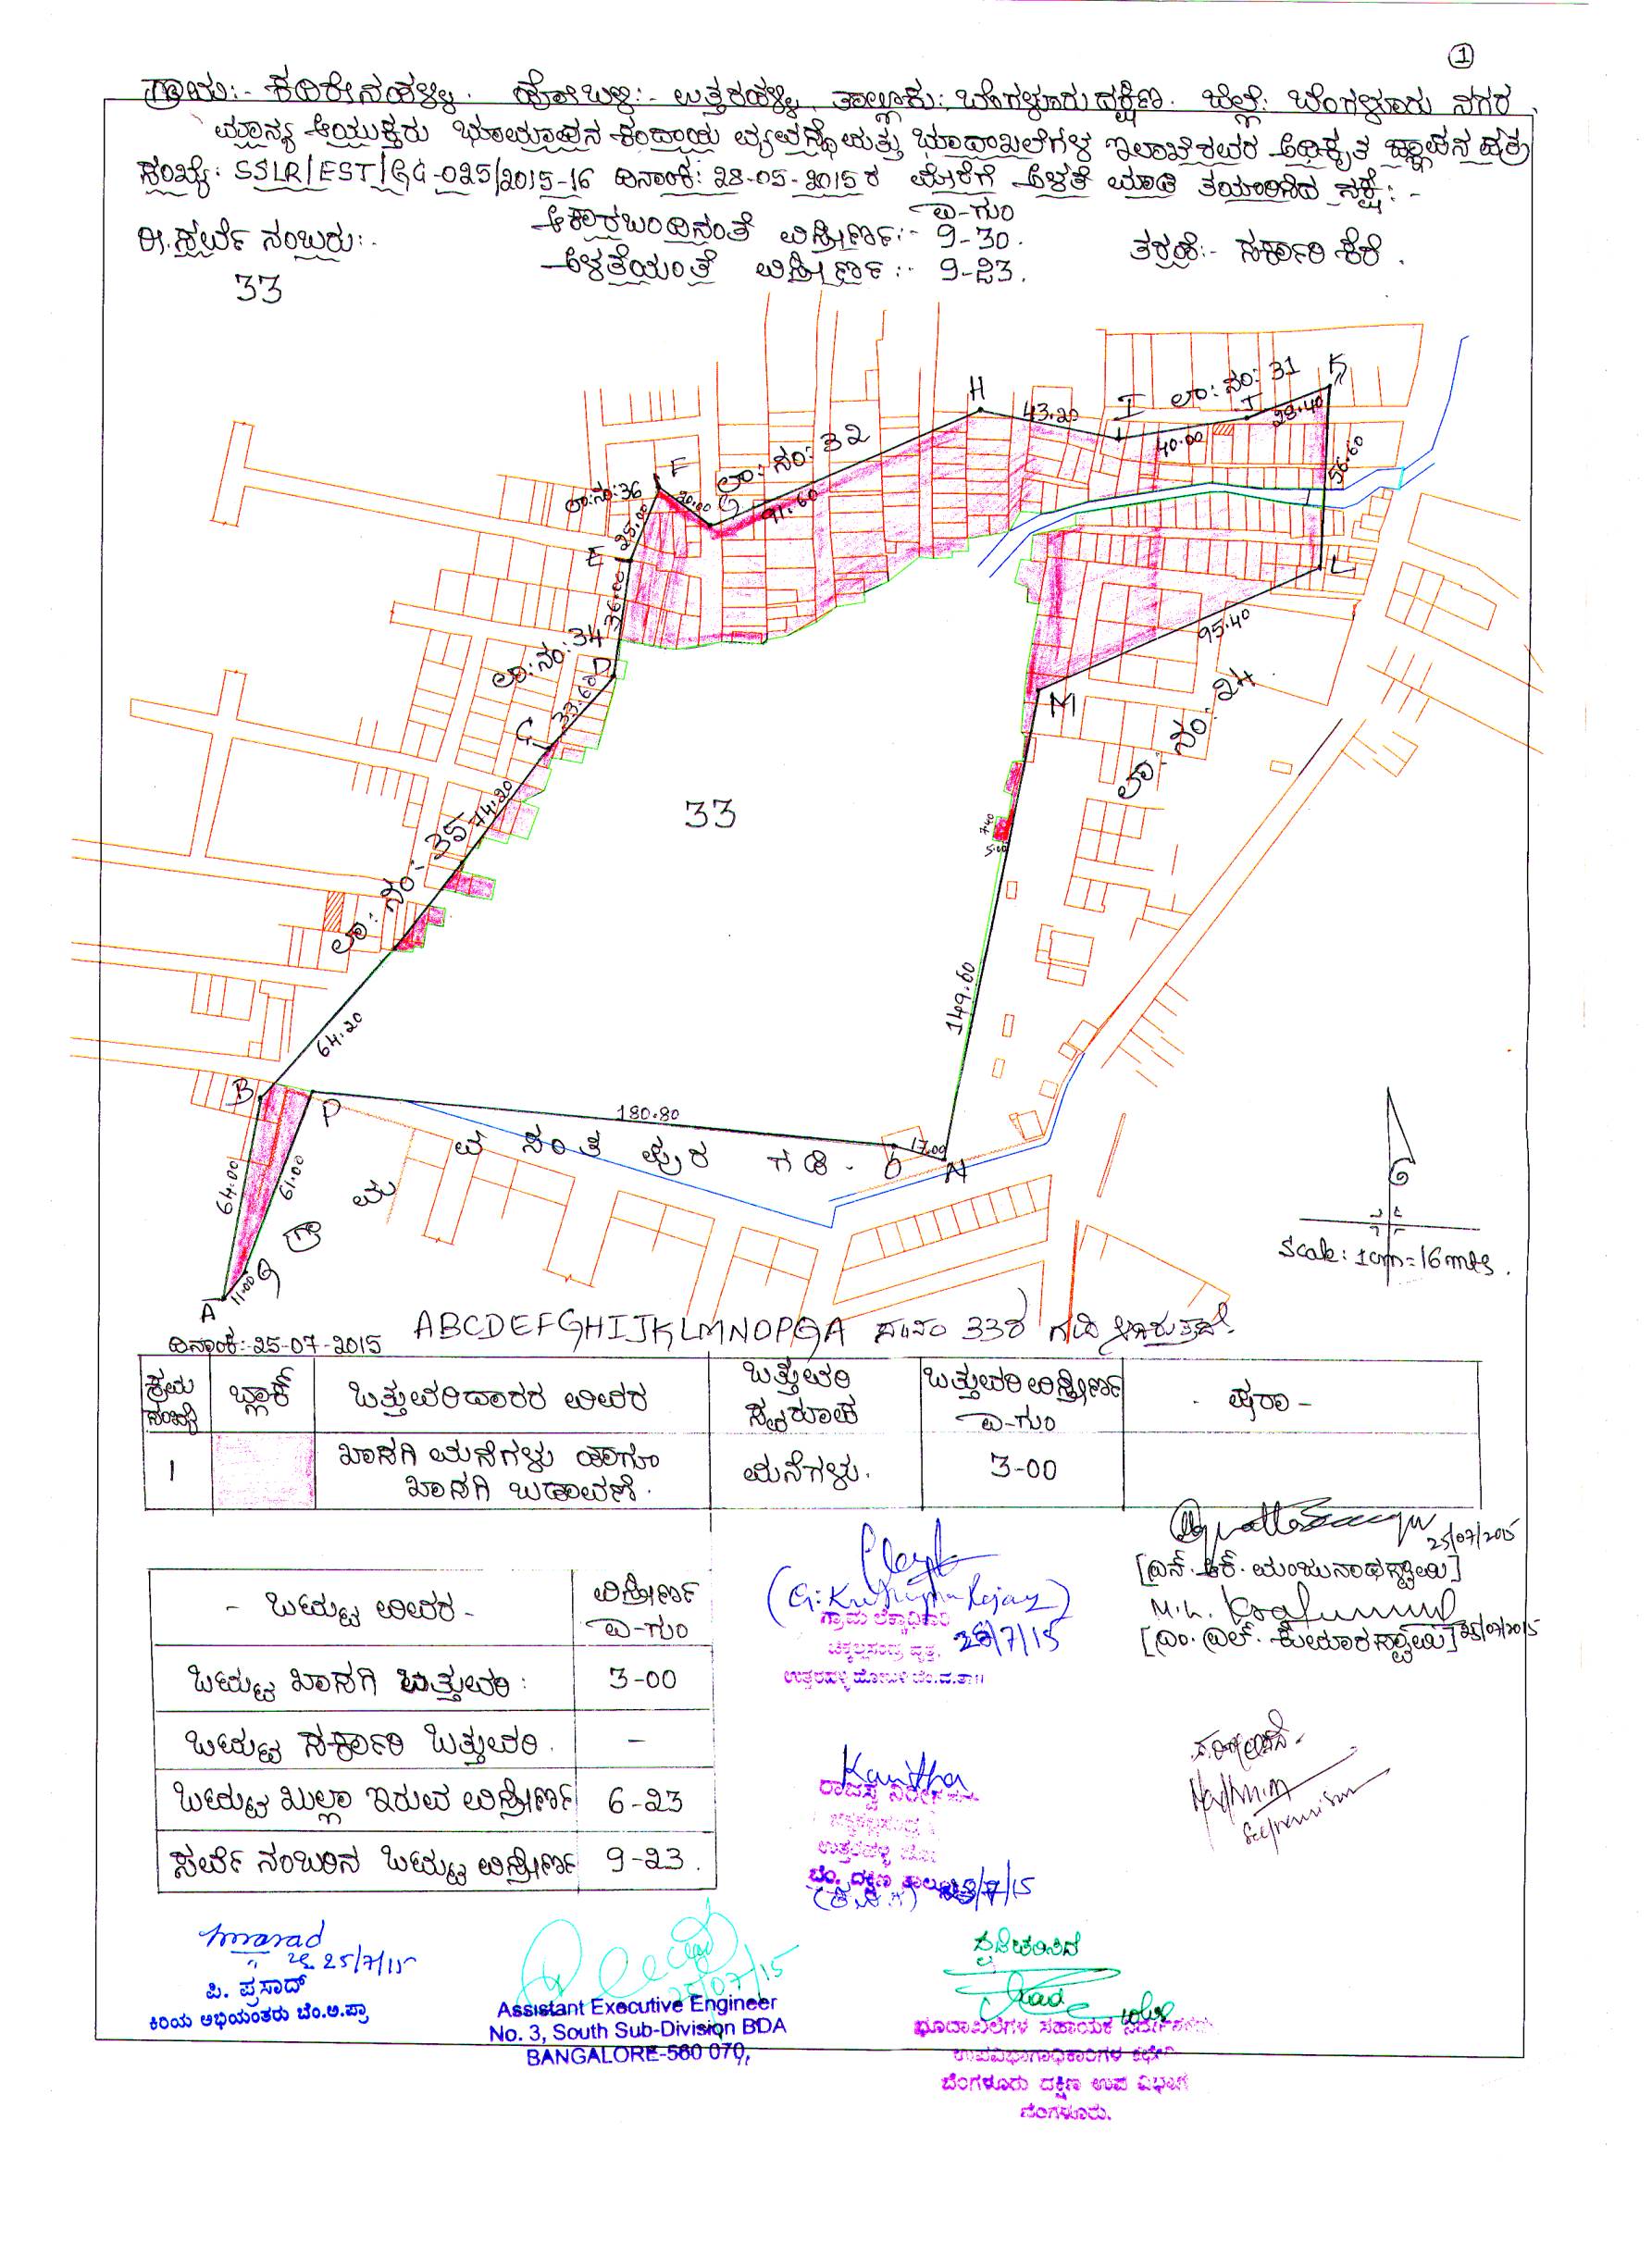 1
ಗ್ರಾಮ:- ಕದಿರೇನಹಳ್ಳಿ. ಹೋಬಳಿ:- ಉತ್ತರಹಳ್ಳಿ, ತಾಲ್ಲೂಕು: ಬೆಂಗಳೂರು ದಕ್ಷಿಣ. ಜಿಲ್ಲೆ: ಬೆಂಗಳೂರು ನಗರ.
ಮಾನ್ಯ ಆಯುಕ್ತರು ಭೂಮಾಪನ ಕಂದಾಯ ವ್ಯವಸ್ಥೆ ಮತ್ತು ಭೂದಾಖಲೆಗಳ ಇಲಾಖೆ ರವರ ಅಧಿಕೃತ ಜ್ಞಾಪನ ಪತ್ರ
ಸಂಖ್ಯೆ: SSLR/EST/GG-025/2015-16 ದಿನಾಂಕ: 28-05-2015ರ ಮೇರೆಗೆ ಅಳತೆ ಮಾಡಿ ತಯಾರಿಸಿದ ನಕ್ಷೆ:-
ಎ-ಗುಂ
ರೀ.ಸರ್ವೆ ನಂಬರು:- ಆಕಾರಬಂದಿನಂತೆ ವಿಸ್ತೀರ್ಣ:- 9-30. ತರಹೆ:- ಸರ್ಕಾರಿ ಕೆರೆ.
33 ಅಳತೆಯಂತೆ ವಿಸ್ತೀರ್ಣ:- 9-23.
H 43.20 I ಲಾ:ನಂ:31 J K
40.00 29.40
ಲಾ:ನಂ:32
ಲಾ:ನಂ:36 F 20.00 G 91.60 56.60
25.00
E 36.00 L
95.40
ಲಾ:ನಂ:34 D
33.60 M ಲಾ:ನಂ:24
C
74.20 33
7.40
5.00
ಲಾ:ನಂ:35
149.60
64.20
B P 180.80
ವಸಂತಪುರ ಗಡಿ. O 17.00 N
64.00 61.00 ಗ್ರಾಮ
Scale: 1cm=16mts.
A 11.00 Q
ABCDEFGHIJKLMNOPQA ಸ.ನಂ 33ರ ಗಡಿ ಆಗಿರುತ್ತದೆ.
ದಿನಾಂಕ:-25-07-2015
ಕ್ರಮ ಸಂಖ್ಯೆ ಬ್ಲಾಕ್ ಒತ್ತುವರಿದಾರರ ವಿವರ ಒತ್ತುವರಿ ಸ್ವರೂಪ ಒತ್ತುವರಿ ವಿಸ್ತೀರ್ಣ ಎ-ಗುಂ - ಷರಾ -
1 ಖಾಸಗಿ ಮನೆಗಳು ಹಾಗೂ ಮನೆಗಳು. 3-00
ಖಾಸಗಿ ಬಡಾವಣೆ.
25/07/2015
[ಎನ್. ಆರ್. ಮಂಜುನಾಥಸ್ವಾಮಿ]
[ಎಂ. ಎಲ್. ಕುಮಾರಸ್ವಾಮಿ] 25/07/2015
ಗ್ರಾಮ ಲೆಕ್ಕಾಧಿಕಾರಿ
28/7/15
- ಒಟ್ಟು ವಿವರ - ವಿಸ್ತೀರ್ಣ ಎ-ಗುಂ
ಒಟ್ಟು ಖಾಸಗಿ ಒತ್ತುವರಿ: 3-00
ಒಟ್ಟು ಸರ್ಕಾರಿ ಒತ್ತುವರಿ. -
ಒಟ್ಟು ಖುಲ್ಲಾ ಇರುವ ವಿಸ್ತೀರ್ಣ 6-23
ಸರ್ವೆ ನಂಬರಿನ ಒಟ್ಟು ವಿಸ್ತೀರ್ಣ 9-23.
Kanitha
ರಾಜಸ್ವ ನಿರೀಕ್ಷಕ
ಬೆಂ. ದಕ್ಷಿಣ ತಾಲ್ಲೂಕು
25/7/15
ಪಿ. ಪ್ರಸಾದ್
ಕಿರಿಯ ಅಭಿಯಂತರು ಬೆಂ.ಅ.ಪ್ರಾ
25/07/15
Assistant Executive Engineer
No. 3, South Sub-Division BDA
BANGALORE-560 070,
ಭೂದಾಖಲೆಗಳ ಸಹಾಯಕ ನಿರ್ದೇಶಕರು
ಉಪವಿಭಾಗಾಧಿಕಾರಿಗಳ ಕಛೇರಿ
ಬೆಂಗಳೂರು ದಕ್ಷಿಣ ಉಪ ವಿಭಾಗ
ಬೆಂಗಳೂರು.